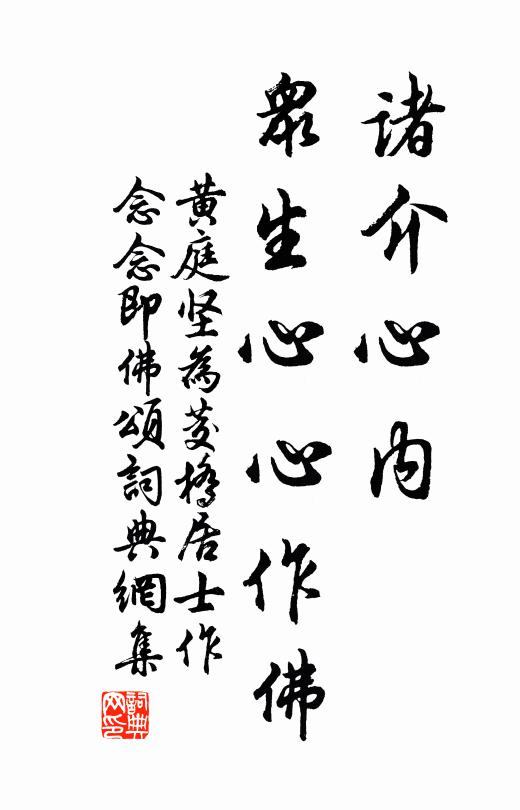 諸介心内
衆生心心作佛
黄庭坚為茭橋居士作
念念即佛頌詞典網集
詞典
网印